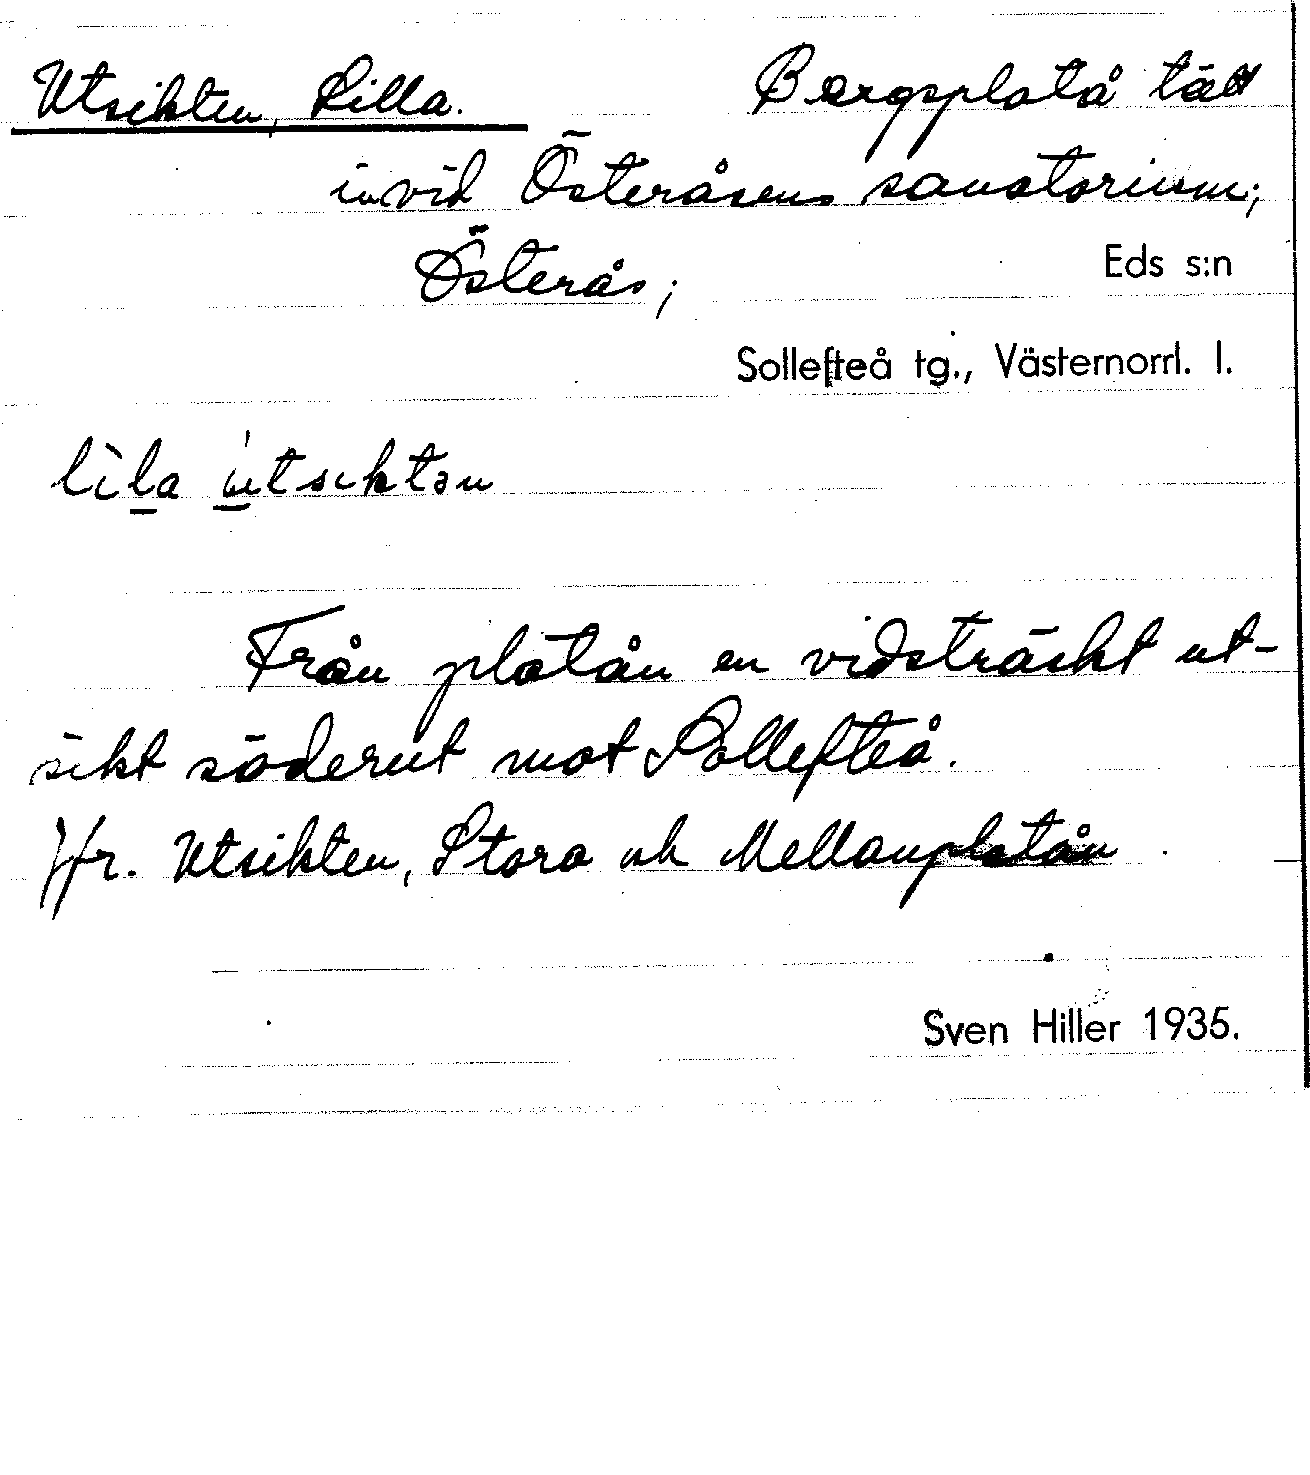 Utsikten, Lilla. Bergsplatå tätt
invid Österåsens sanatorium;
Österås; Eds s:n
Sollefteå tg., Västernorrl. l.
lìla ùtsiktən
Från platån en vidsträckt ut-
sikt söderut mot Sollefteå.
Jfr. Utsikten, Stora och Mellanplatån
Sven Hiller 1935.